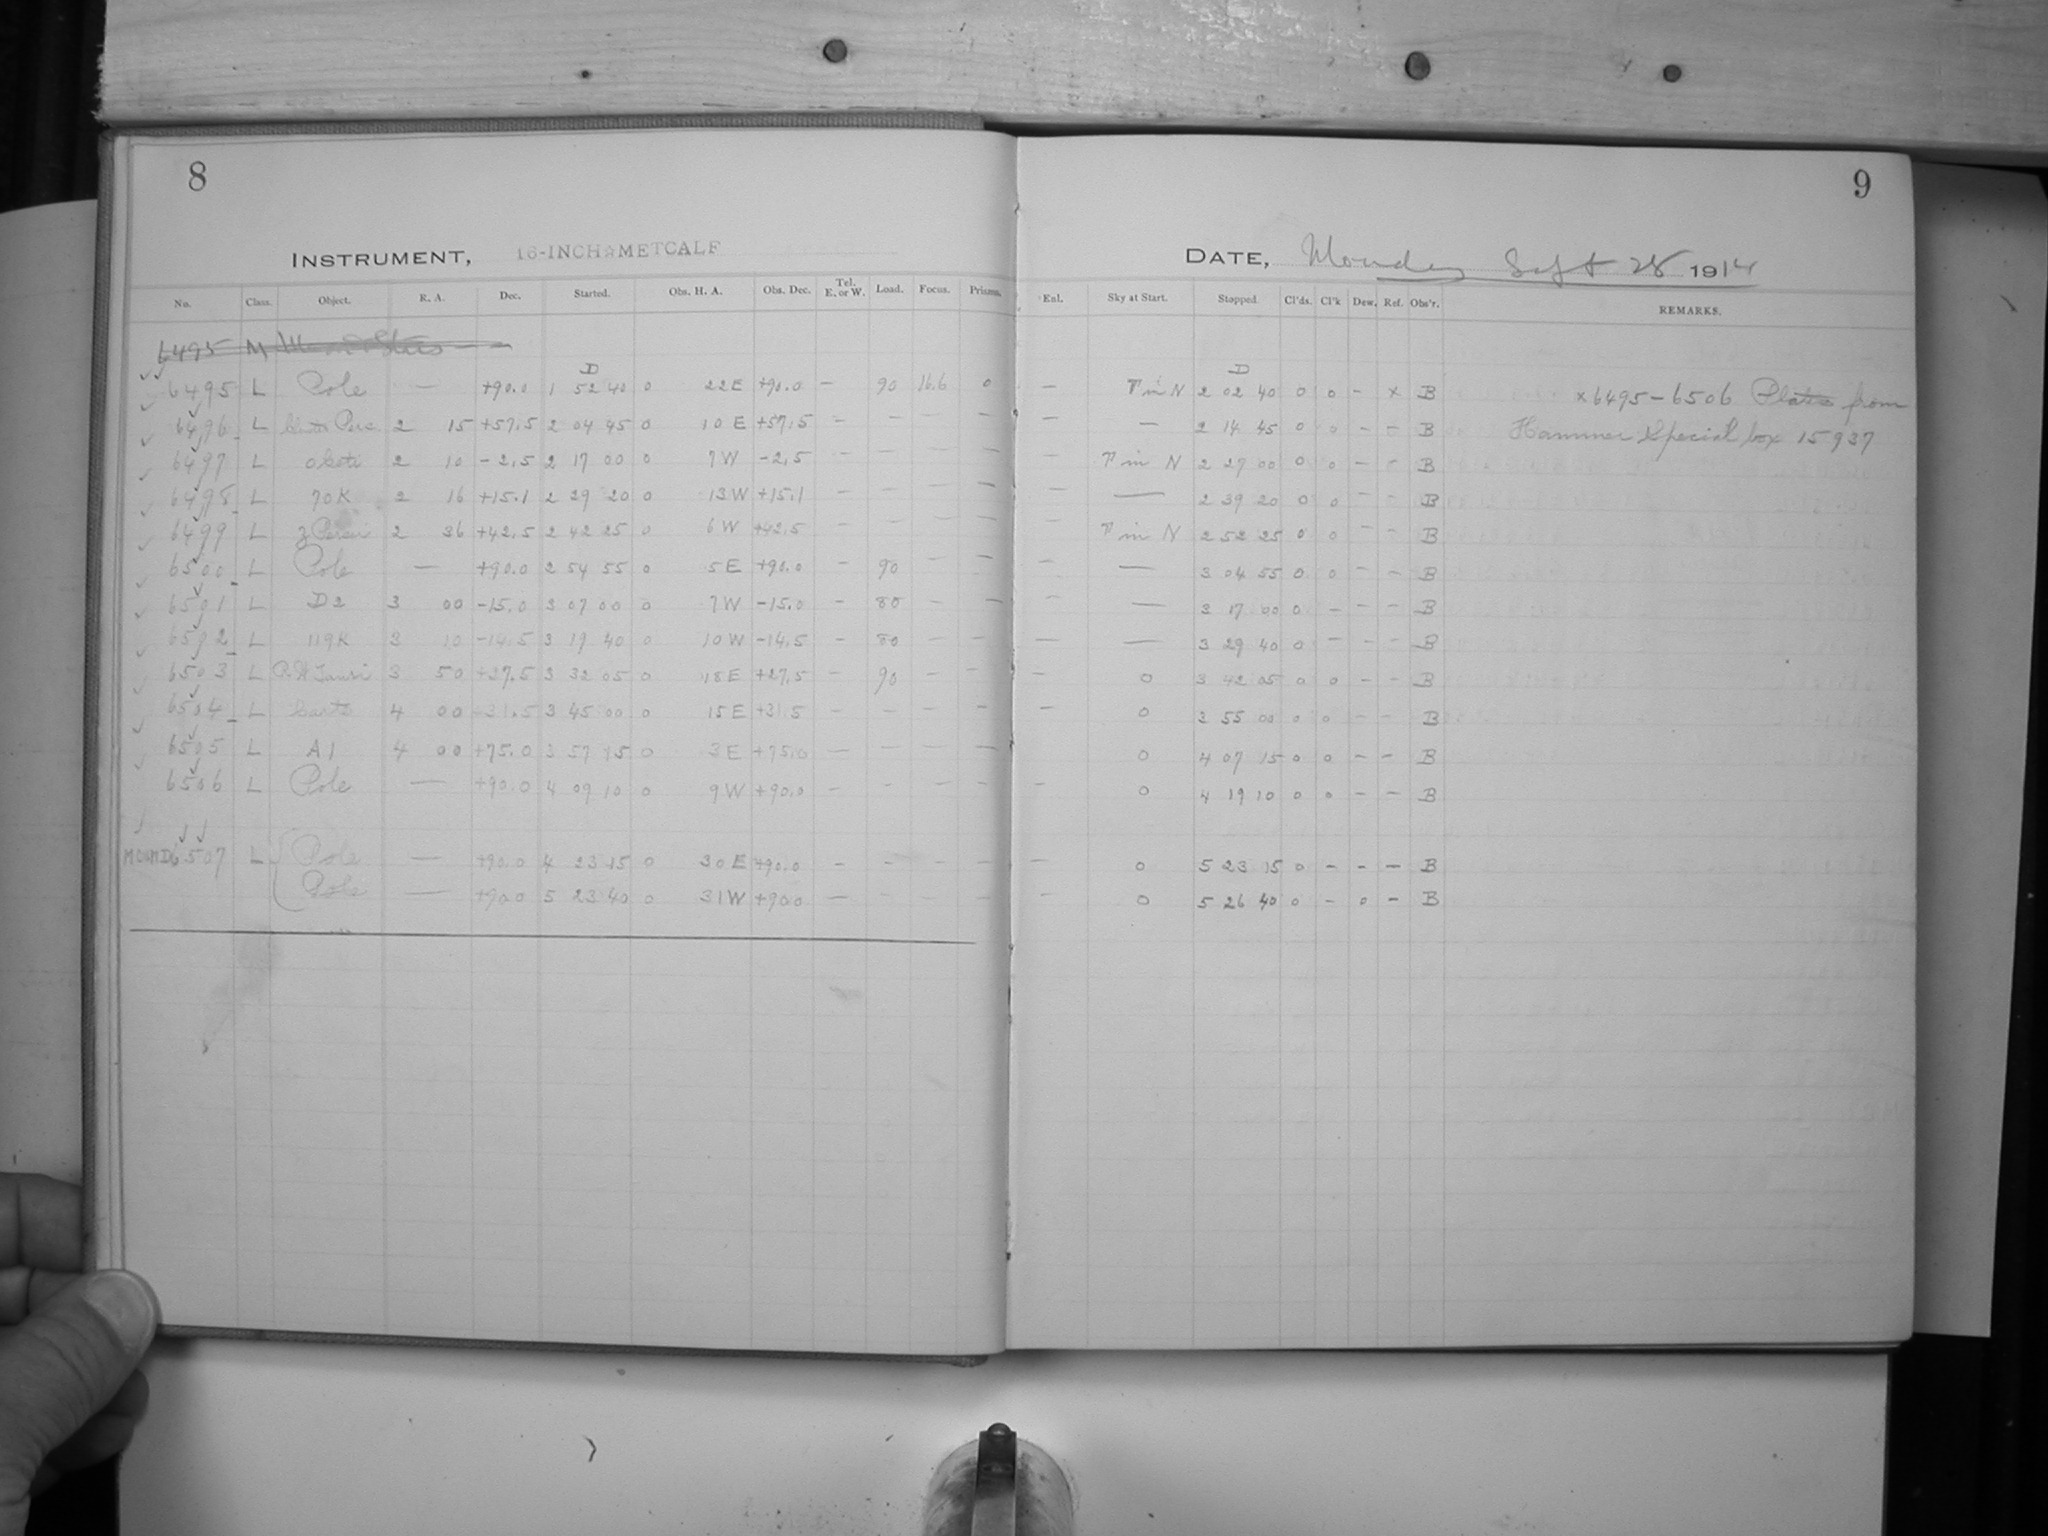 8
9
INSTRUMENT, 16-INCH METCALF
DATE, Monday Sept 28 1914
No. Class. Object. R. A. Dec. Started. Obs. H. A. Obs. Dec. Tel. E. or W. Load. Focus. Prisms. Enl. Sky at Start. Stopped. Cl'ds. Cl'k Dew. Ref. Obs'r. REMARKS.
6495 M Stars
D D
6495 L Pole — +90.0 1 52 40 0 22 E +90.0 – 90 16.6 0 – T in N 2 02 40 0 0 – x B x6495–6506 Plates from
6496 L Pers 2 15 +57.5 2 04 45 0 10 E +57.5 – – – – – — 2 14 45 0 0 – – B Hammer Special box 15937
6497 L oketi 2 10 –2.5 2 17 00 0 7 W –2.5 – – – – – T in N 2 27 00 0 0 – – B
6498 L 70K 2 16 +15.1 2 29 20 0 13 W +15.1 – – – – – — 2 39 20 0 0 – – B
6499 L 2 36 +42.5 2 42 25 0 6 W +42.5 – – – – – T in N 2 52 25 0 0 – – B
6500 L Pole — +90.0 2 54 55 0 5 E +90.0 – 90 – – – — 3 04 55 0 0 – – B
6501 L D2 3 00 –15.0 3 07 00 0 7 W –15.0 – 80 – – – — 3 17 00 0 – – – B
6502 L 119K 3 10 –14.5 3 19 40 0 10 W –14.5 – 80 – – – — 3 29 40 0 – – – B
6503 L Tauri 3 50 +27.5 3 32 05 0 18 E +27.5 – 90 – – – 0 3 42 05 0 0 – – B
6504 L 4 00 +31.5 3 45 00 0 15 E +31.5 – – – – – 0 3 55 00 0 0 – – B
6505 L A1 4 00 +75.0 3 57 15 0 3 E +75.0 – – – – 0 4 07 15 0 0 – – B
6506 L Pole — +90.0 4 09 10 0 9 W +90.0 – – – – – 0 4 19 10 0 0 – – B
6507 L Pole — +90.0 4 23 15 0 30 E +90.0 – – – – – 0 5 23 15 0 – – – B
Pole — +90.0 5 23 40 0 31 W +90.0 – – – – 0 5 26 40 0 – 0 – B